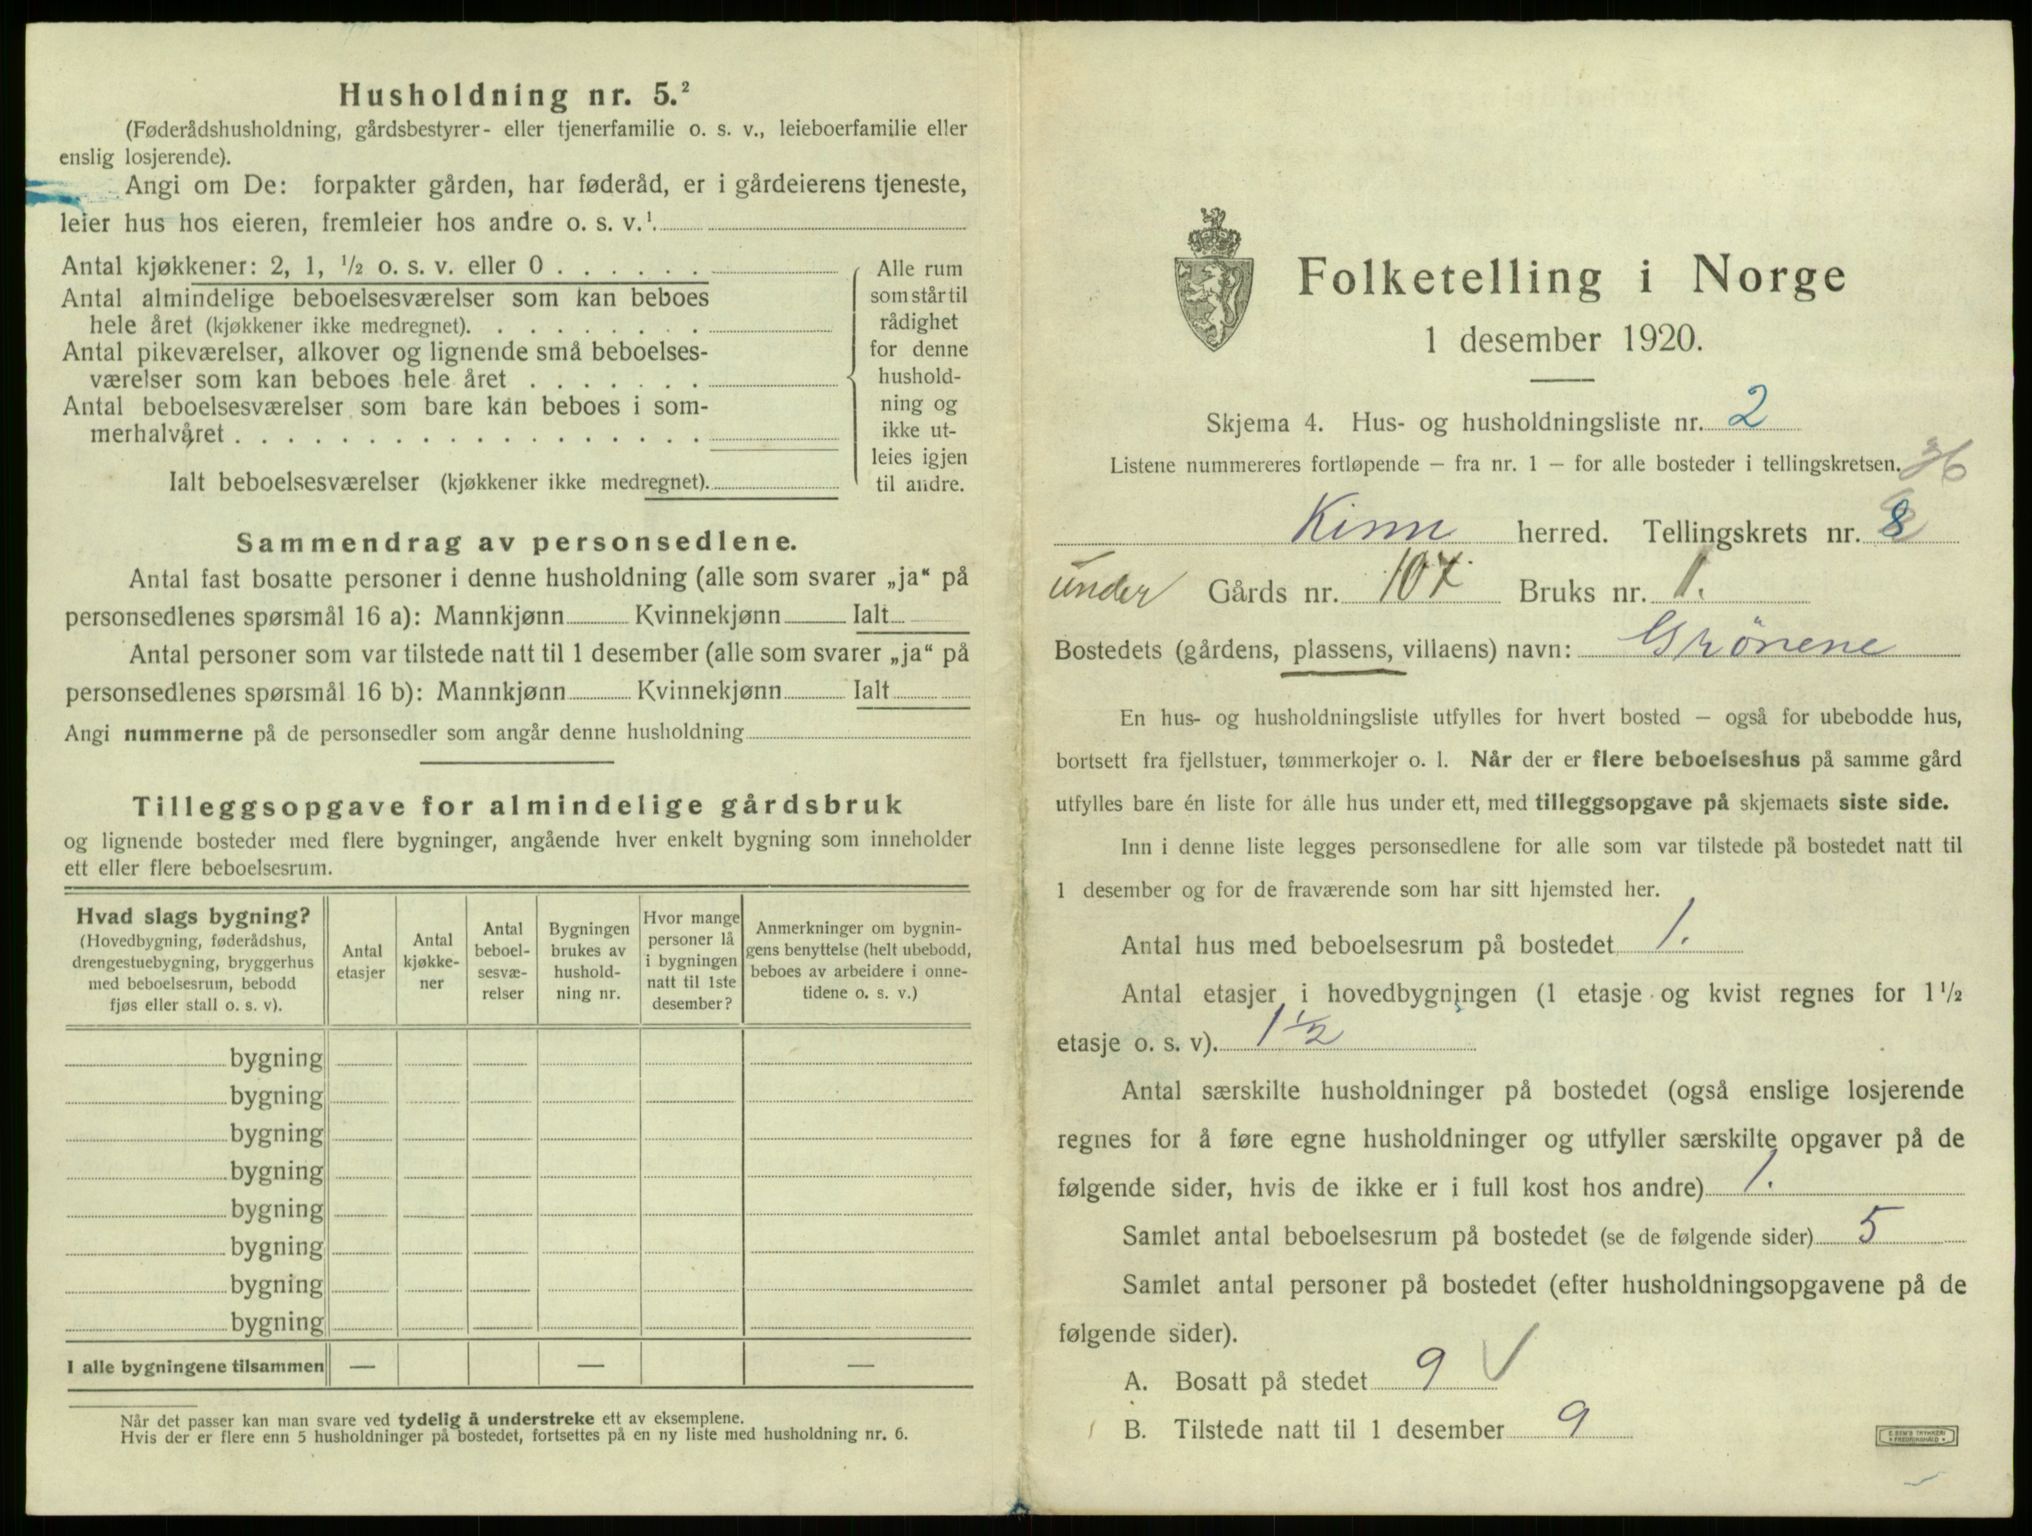 Husholdning nr. 5.²
(Føderådshusholdning, gårdsbestyrer- eller tjenerfamilie o. s. v., leieboerfamilie eller
enslig losjerende).
Angi om De: forpakter gården, har føderåd, er i gårdeierens tjeneste,
leier hus hos eieren, fremleier hos andre o. s. v.¹
Antal kjøkkener: 2, 1, ½ o. s. v. eller 0
Antal almindelige beboelsesværelser som kan beboes
hele året (kjøkkener ikke medregnet).
Antal pikeværelser, alkover og lignende små beboelses-
værelser som kan beboes hele året
Antal beboelsesværelser som bare kan beboes i som-
merhalvåret
Ialt beboelsesværelser (kjøkkener ikke medregnet).
Alle rum
som står til
rådighet
for denne
hushold-
ning og
ikke ut-
leies igjen
til andre.
Sammendrag av personsedlene.
Antal fast bosatte personer i denne husholdning (alle som svarer „ja“ på
personsedlenes spørsmål 16 a): Mannkjønn Kvinnekjønn Ialt
Antal personer som var tilstede natt til 1 desember (alle som svarer „ja“ på
personsedlenes spørsmål 16 b): Mannkjønn Kvinnekjønn Ialt
Angi nummerne på de personsedler som angår denne husholdning
Tilleggsopgave for almindelige gårdsbruk
og lignende bosteder med flere bygninger, angående hver enkelt bygning som inneholder
ett eller flere beboelsesrum.
Hvad slags bygning?
(Hovedbygning, føderådshus,
drengestuebygning, bryggerhus
med beboelsesrum, bebodd
fjøs eller stall o. s. v).
Antal
etasjer
Antal
kjøkke-
ner
Antal
beboel-
sesvæ-
relser
Bygningen
brukes av
hushold-
ning nr.
Hvor mange
personer lå
i bygningen
natt til 1ste
desember?
Anmerkninger om bygnin-
gens benyttelse (helt ubebodd,
beboes av arbeidere i onne-
tidene o. s. v.)
bygning
bygning
bygning
bygning
bygning
bygning
bygning
bygning
I alle bygningene tilsammen — — —
Når det passer kan man svare ved tydelig å understreke ett av eksemplene.
Hvis der er flere enn 5 husholdninger på bostedet, fortsettes på en ny liste med husholdning nr. 6.
Folketelling i Norge
1 desember 1920.
Skjema 4. Hus- og husholdningsliste nr. 2
Listene nummereres fortløpende – fra nr. 1 – for alle bosteder i tellingskretsen. 36
Kinn herred. Tellingskrets nr. 8
under Gårds nr. 107. Bruks nr. 1.
Bostedets (gårdens, plassens, villaens) navn: Grönene
En hus- og husholdningsliste utfylles for hvert bosted – også for ubebodde hus,
bortsett fra fjellstuer, tømmerkojer o. l. Når der er flere beboelseshus på samme gård
utfylles bare én liste for alle hus under ett, med tilleggsopgave på skjemaets siste side.
Inn i denne liste legges personsedlene for alle som var tilstede på bostedet natt til
1 desember og for de fraværende som har sitt hjemsted her.
Antal hus med beboelsesrum på bostedet 1.
Antal etasjer i hovedbygningen (1 etasje og kvist regnes for 1½
etasje o. s. v). 1½
Antal særskilte husholdninger på bostedet (også enslige losjerende
regnes for å føre egne husholdninger og utfyller særskilte opgaver på de
følgende sider, hvis de ikke er i full kost hos andre) 1.
Samlet antal beboelsesrum på bostedet (se de følgende sider) 5
Samlet antal personer på bostedet (efter husholdningsopgavene på de
følgende sider).
A. Bosatt på stedet 9
B. Tilstede natt til 1 desember 9
E. SEM'S TRYKKERI
FREDRIKSHALD